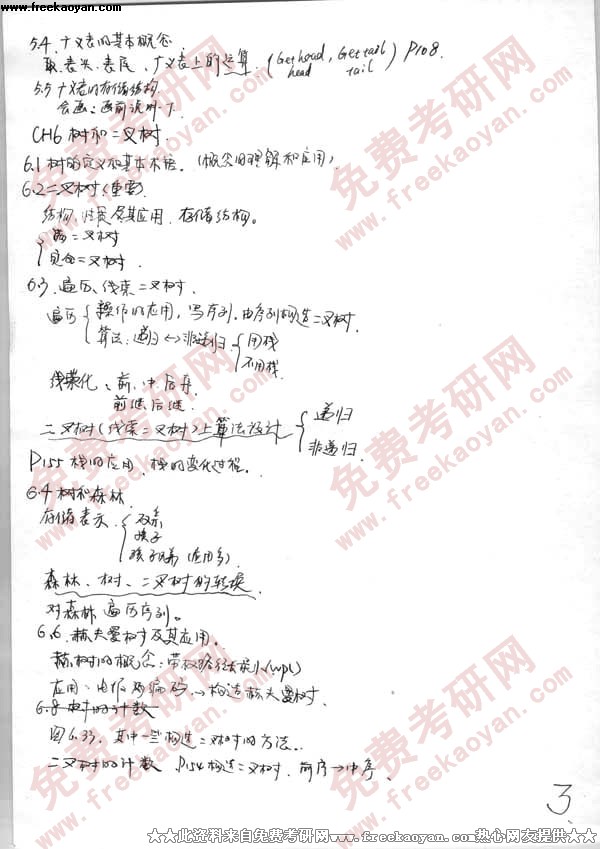 www.freekaoyan.com
www.freekaoyan.com
5.4 广义表的基本概念
取表头、表尾、广义表上的运算 (Gethead, Gettail) P108.
head tail
5.5 广义表的存储结构
会画:画前说明一下
CH6 树和二叉树.
6.1 树的定义和基本术语。(概念的理解和应用)
6.2 二叉树(重要)
结构,性质及其应用,存储结构。
满二叉树
完全二叉树.
6.3 遍历、线索二叉树.
遍历 操作的应用,写序列.由序列构造二叉树.
算法:递归↔非递归 用栈
不用栈
线索化、前.中.后序
前继后继.
二叉树(线索二叉树)上算法设计 递归
非递归.
P155 栈的应用,栈的变化过程.
6.4 树和森林
存储表示 双亲
孩子
孩子兄弟(应用多)
森林、树、二叉树的转换
对森林遍历序列。
6.6. 赫夫曼树及其应用.
赫.树的概念:带权路径长度最小(wpl)
应用:电信码编码→构造赫夫曼树.
6.8 树的计数
图6.33. 其中一些构造二叉树的方法.
二叉树的计数 P154 构造二叉树. 前序→中序、
3
免费考研网
www.freekaoyan.com
★★此资料来自免费考研网www.freekaoyan.com热心网友提供★★